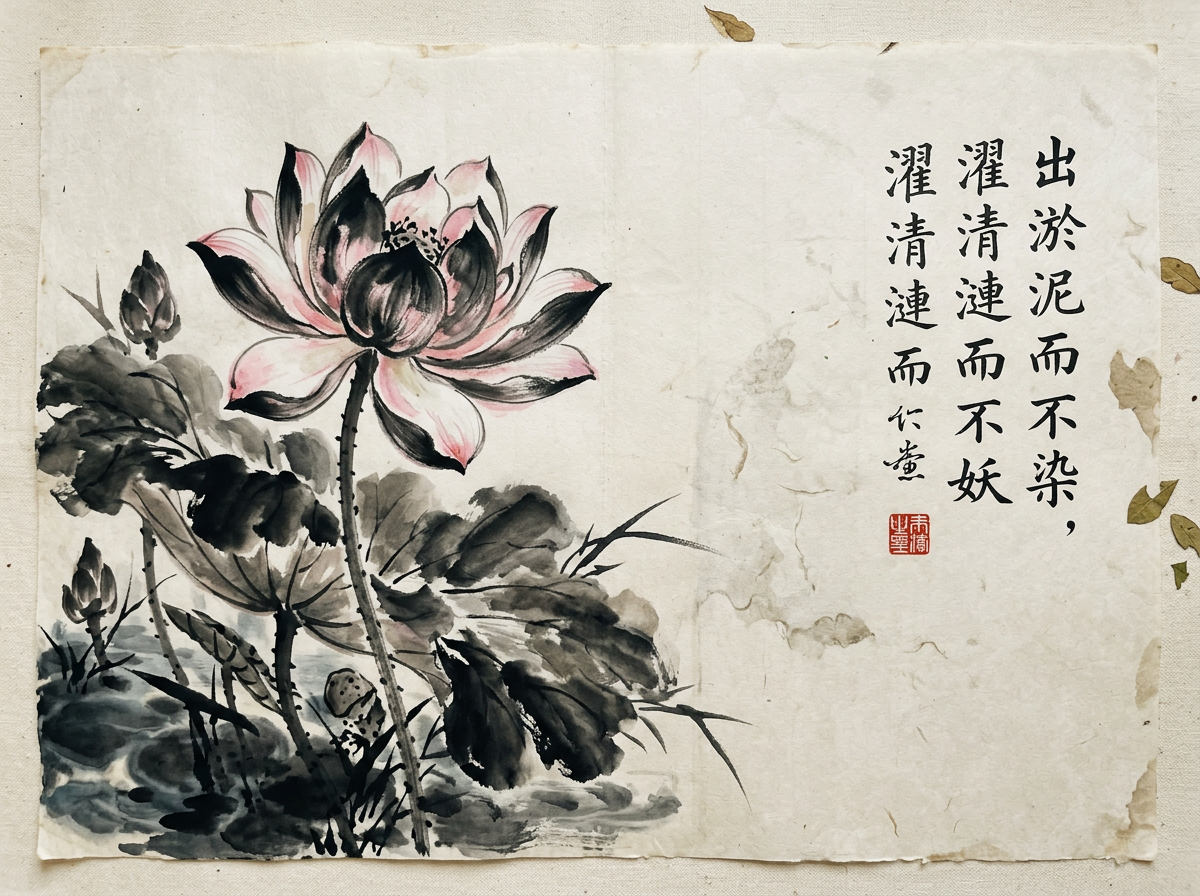 出淤泥而不染，
濯清涟而不妖
濯清涟而